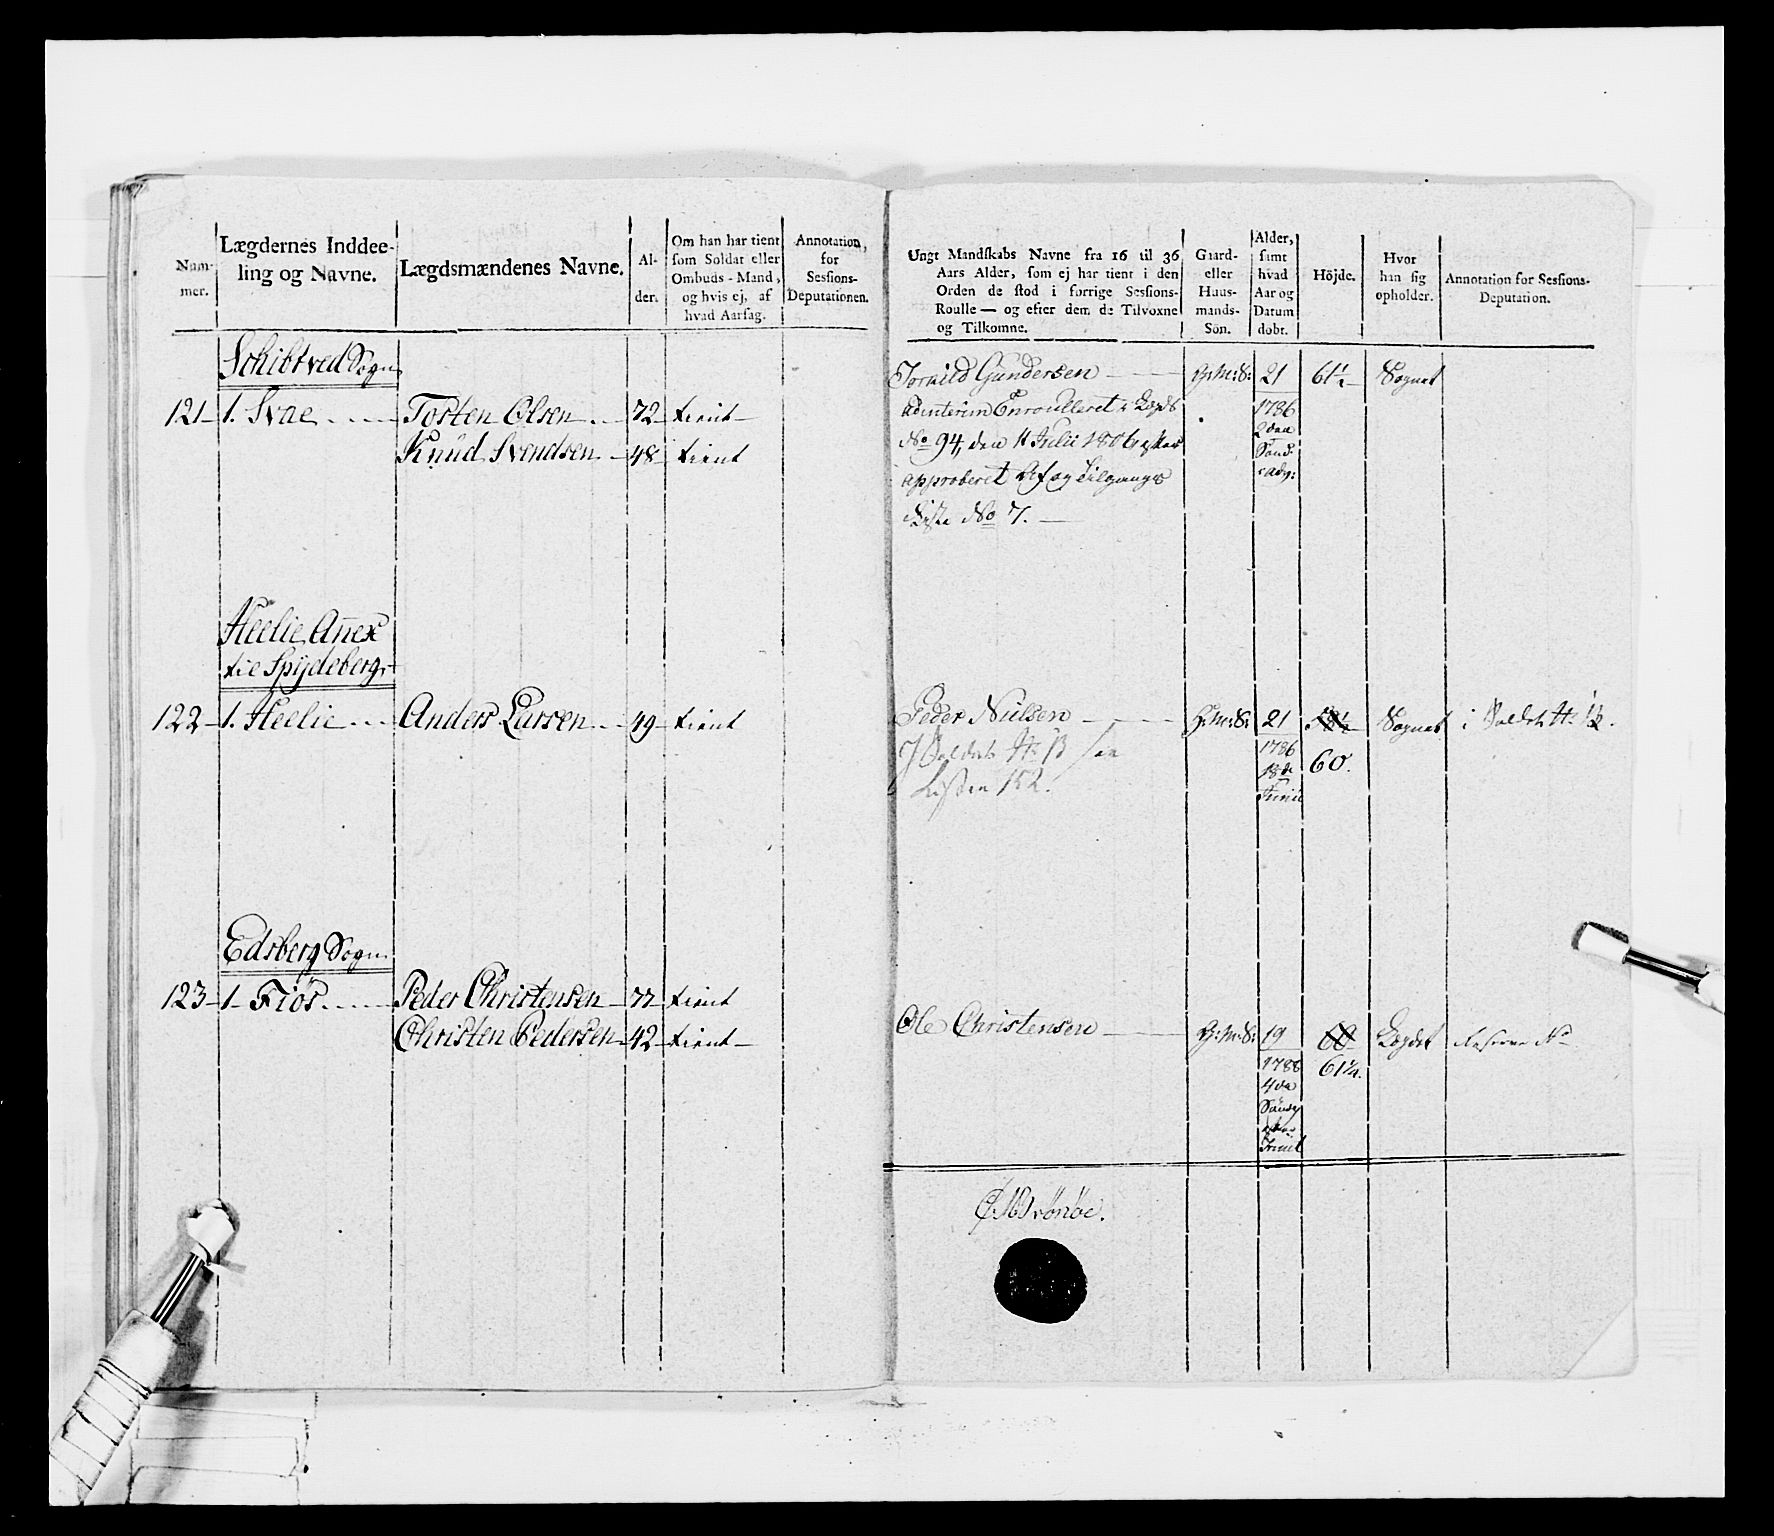 Num-
mer.
Lægdernes Inddee-
ling og Navne.
Lægdsmændenes Navne.
Al-
der.
Om han har tient
som Soldat eller
Ombuds-Mand,
og hvis ej, af
hvad Aarsag.
Annotation,
for
Sessions-
Deputationen.
Schibtved Sogn
121 - 1. Svae - Tosten Olsen - 72 - tient -
Knud Svendsen - 48 - tient
Heelie Anex
til Spydeberg
122 - 1. Heelie - Anders Larsen - 49 - tient
Edsberg Sogn
123 - 1. Fiøs - Peder Christensen - 77 - tient
Christen Pedersen - 42 - tient -
Ungt Mandskabs Navne fra 16 til 36
Aars Alder, som ej har tient i den
Orden de stod i forrige Sessions-
Roulle — og efter dem de Tilvoxne
og Tilkomne.
Gaard-
eller
Huus-
mands-
Søn.
Alder,
samt
hvad
Aar og
Datum
døbt.
Højde.
Hvor
han sig
opholder.
Annotation for Sessions-
Deputation.
Gundersen - G:M:S: 21 61½ Sognet
adinterim Enroulleret i Lægd
No 94, den 11 Julii 1806 efter
approberet Af og Tilgangs
Liste No 7. -
1786
2den
Sønd.
Peder Nielsen - G:M:S: 21 58½ Sognet i Soldat
1786
18de
Junii
60.
Listen 152.
Ole Christensen - G:M:S: 19 60 Lægdet
1788
4de
Sønd
efter
61¼.